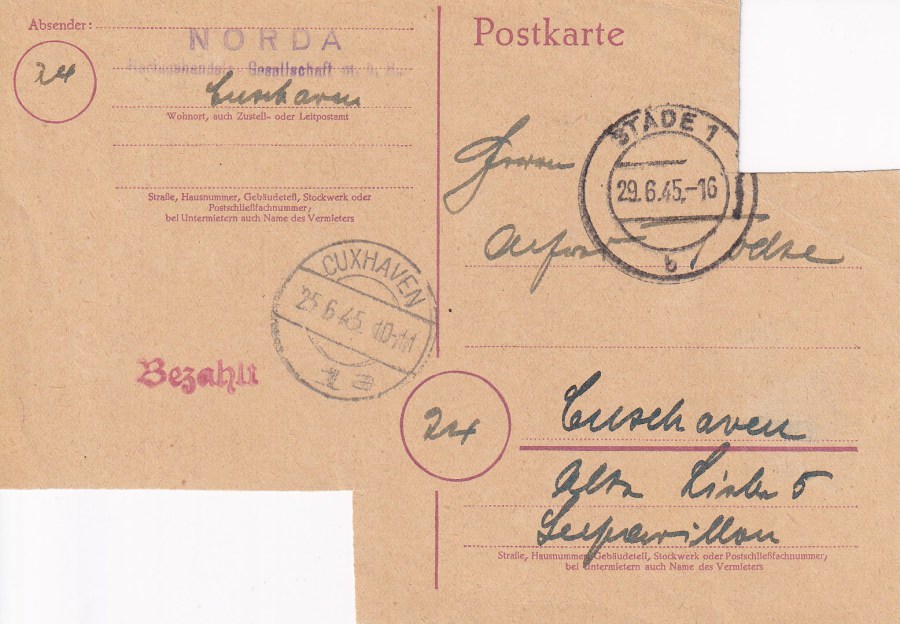 Absender:
NORDA
Gesellschaft m. b. H.
24
Cuxhaven
Wohnort, auch Zustell- oder Leitpostamt
Straße, Hausnummer, Gebäudeteil, Stockwerk oder
Postschließfachnummer;
bei Untermietern auch Name des Vermieters
CUXHAVEN
25.6.45. 10-11
1 a
Bezahlt
Postkarte
STADE 1
29.6.45.-16
b
Herrn
24
Cuxhaven
Alte Liebe 5
Seepavillon
Straße, Hausnummer, Gebäudeteil, Stockwerk oder Postschließfachnummer;
bei Untermietern auch Name des Vermieters